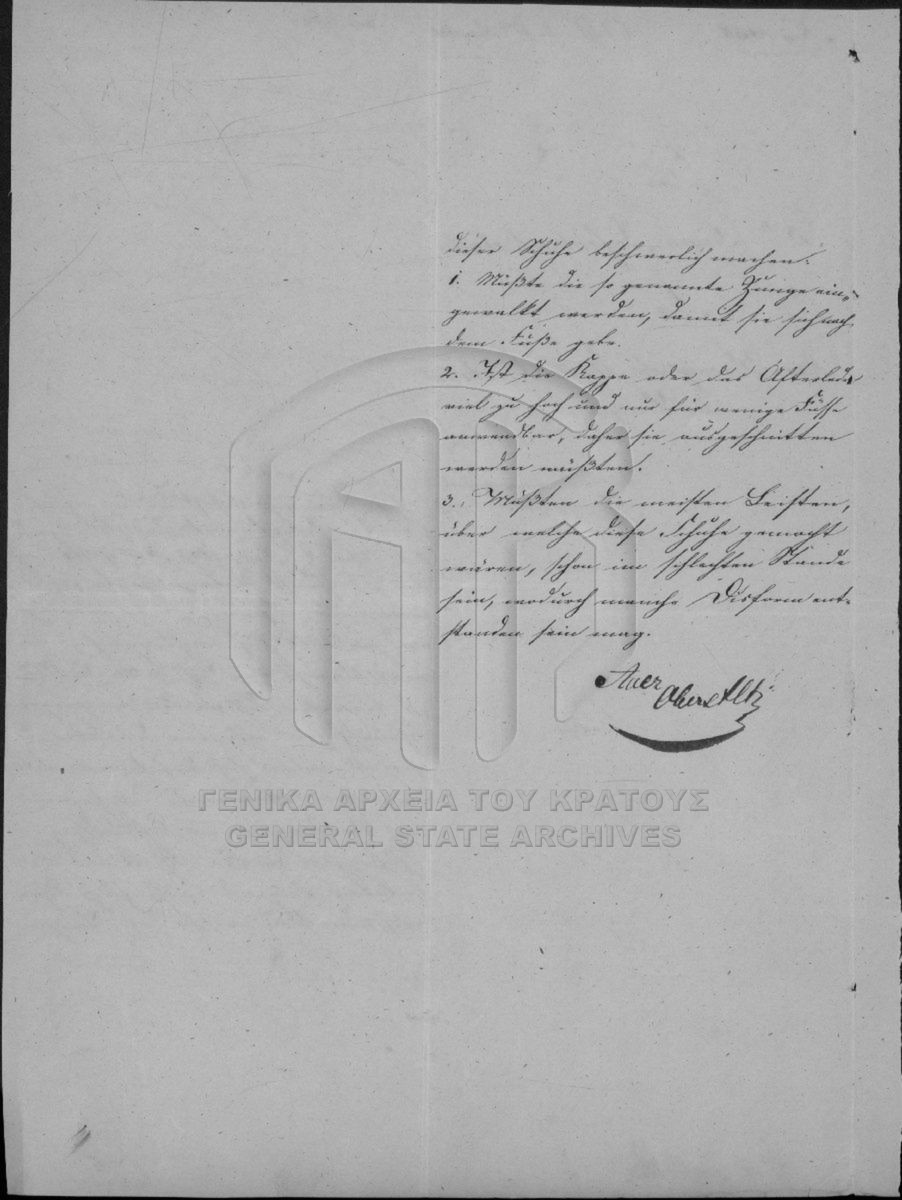 dieser Schuhe beschwerlich machen.
1. Müßte die so genannte Zunge ein-
gewalkt werden, damit sie sich nach
dem Fuße gebe.
2. Ist die Kappe oder das Afterleder
viel zu hoch und nur für wenige Füsse
anwendbar, daher sie ausgeschnitten
werden müßten.
3. Müßten die meisten Leisten,
über welche diese Schuhe gemacht
wären, schon im schlechten Stande
sein, wodurch manche Disform ent-
standen sein mag.
Auer
Oberstlt
ΓΕΝΙΚΑ ΑΡΧΕΙΑ ΤΟΥ ΚΡΑΤΟΥΣ
GENERAL STATE ARCHIVES